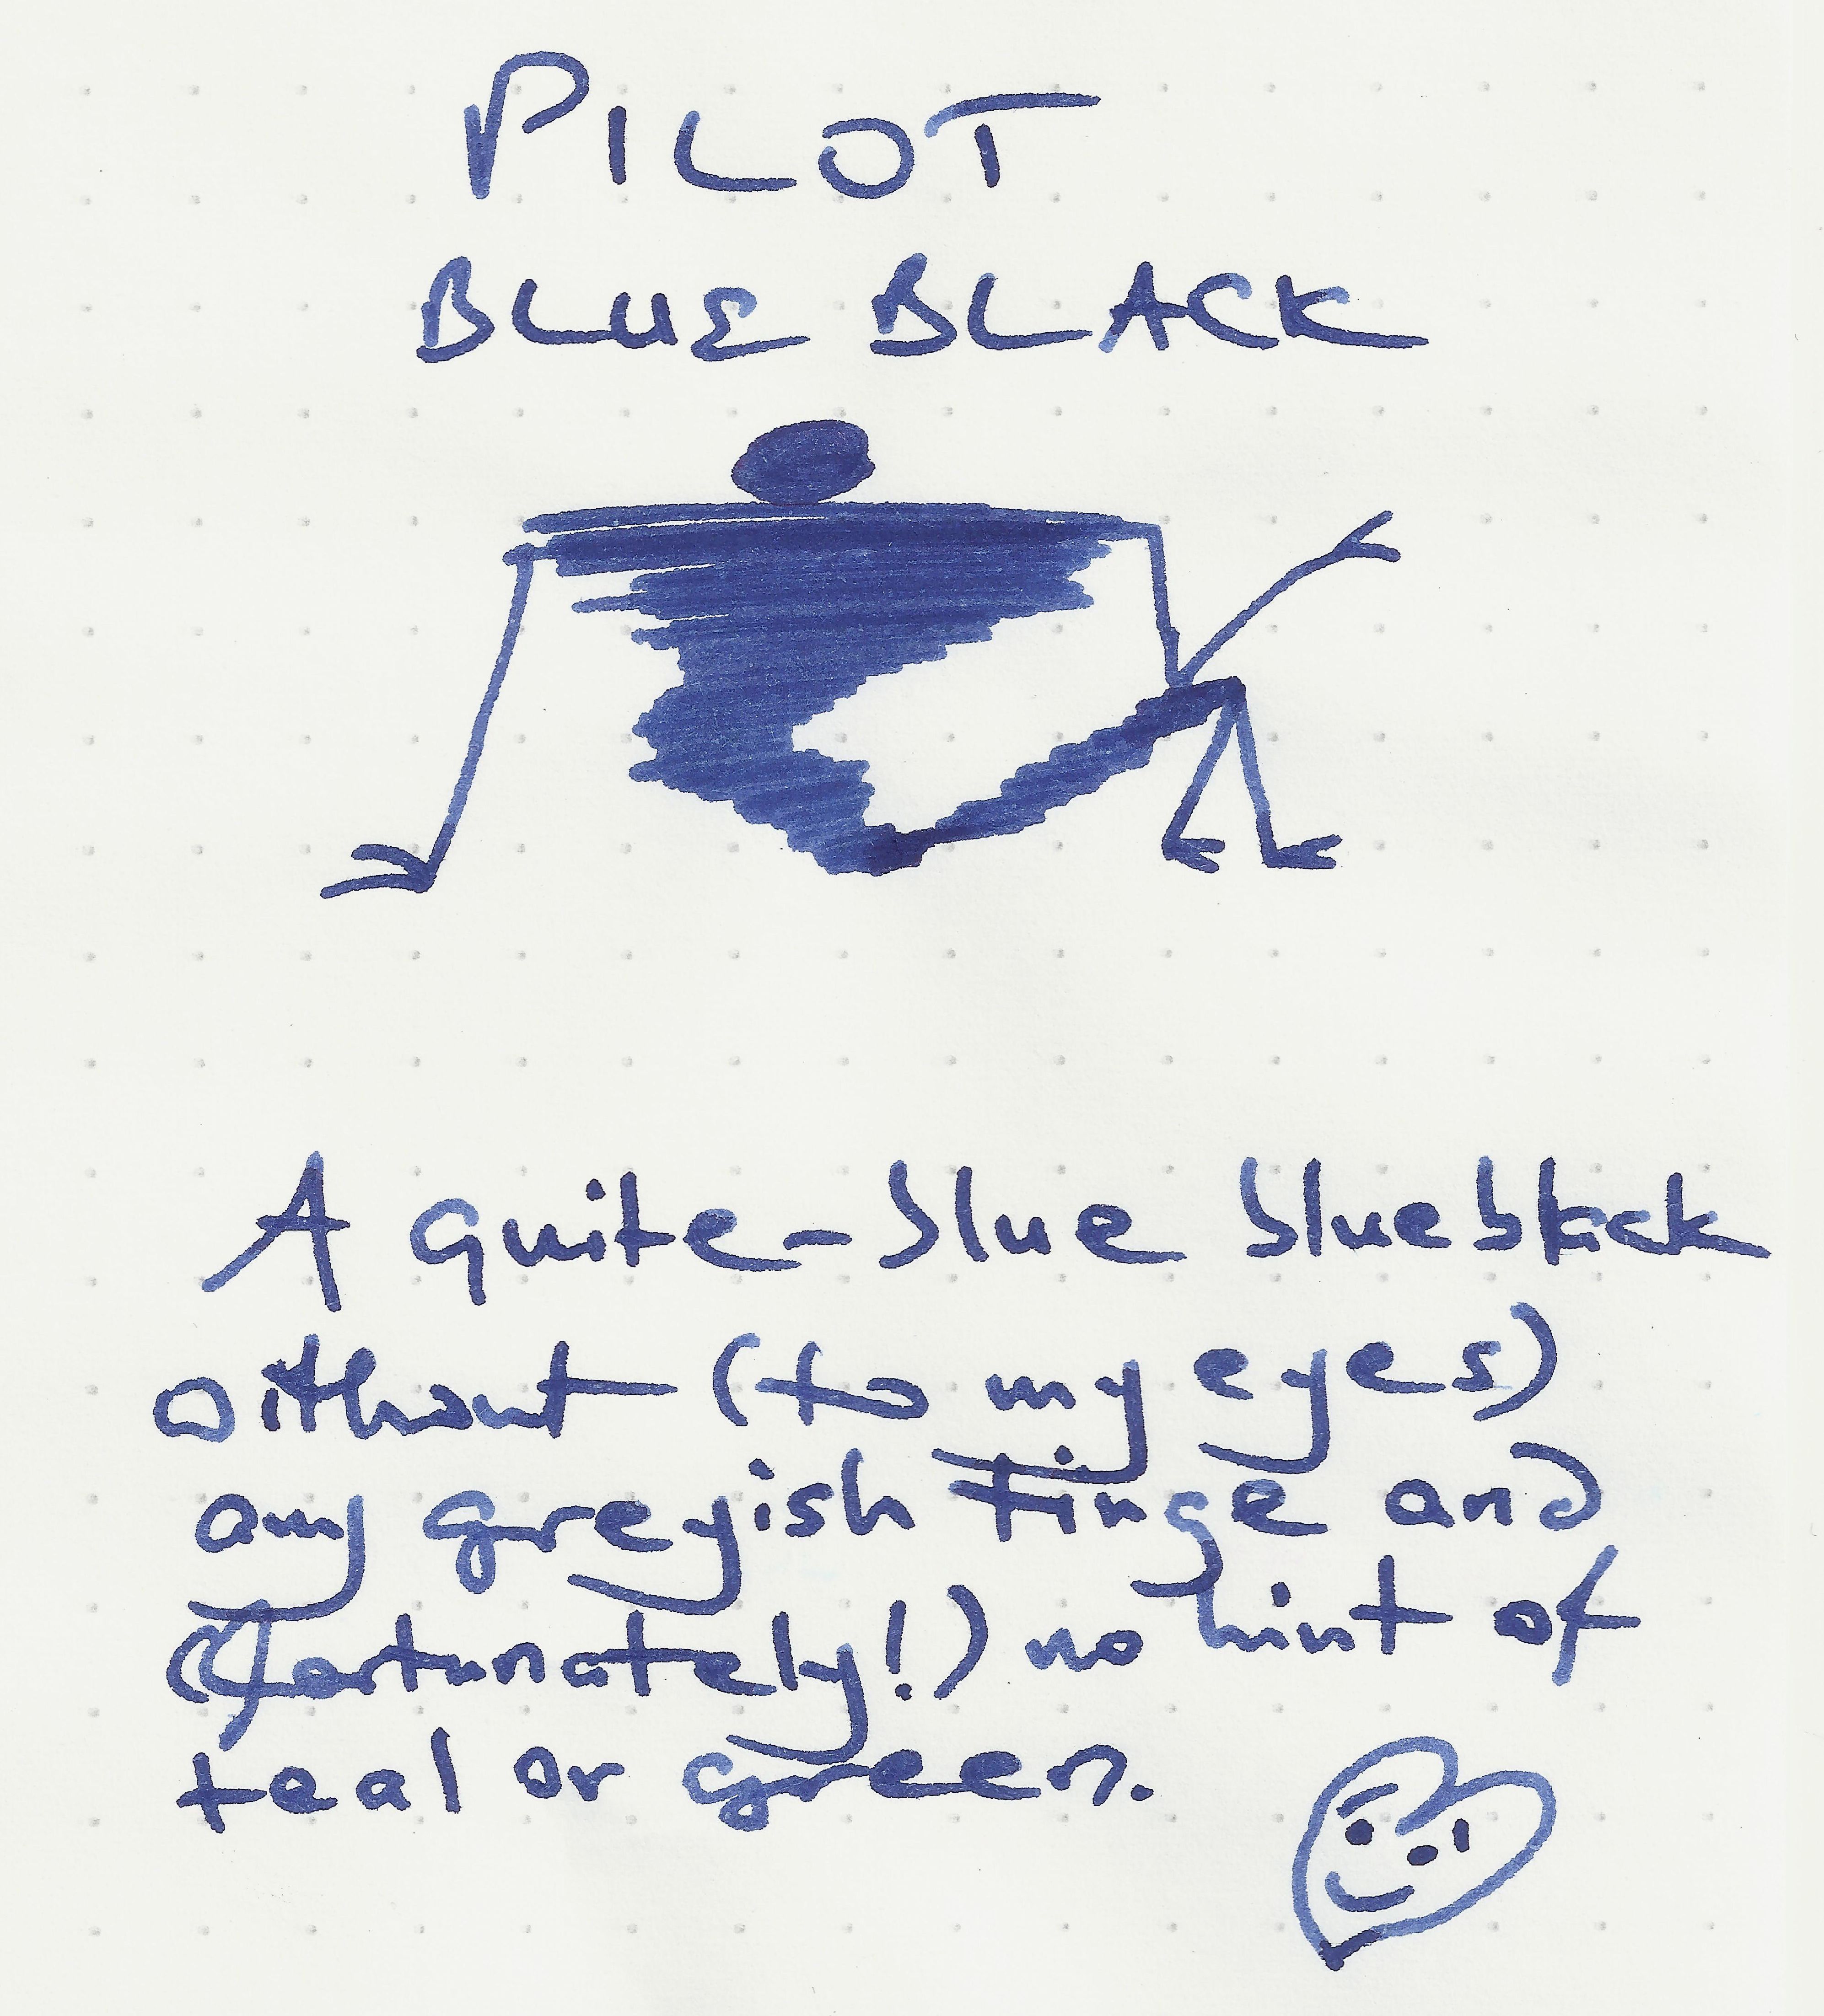 PILOT
BLUE BLACK
A quite-blue blueblack
without (to my eyes)
any greyish tinge and
(fortunately!) no hint of
teal or green.